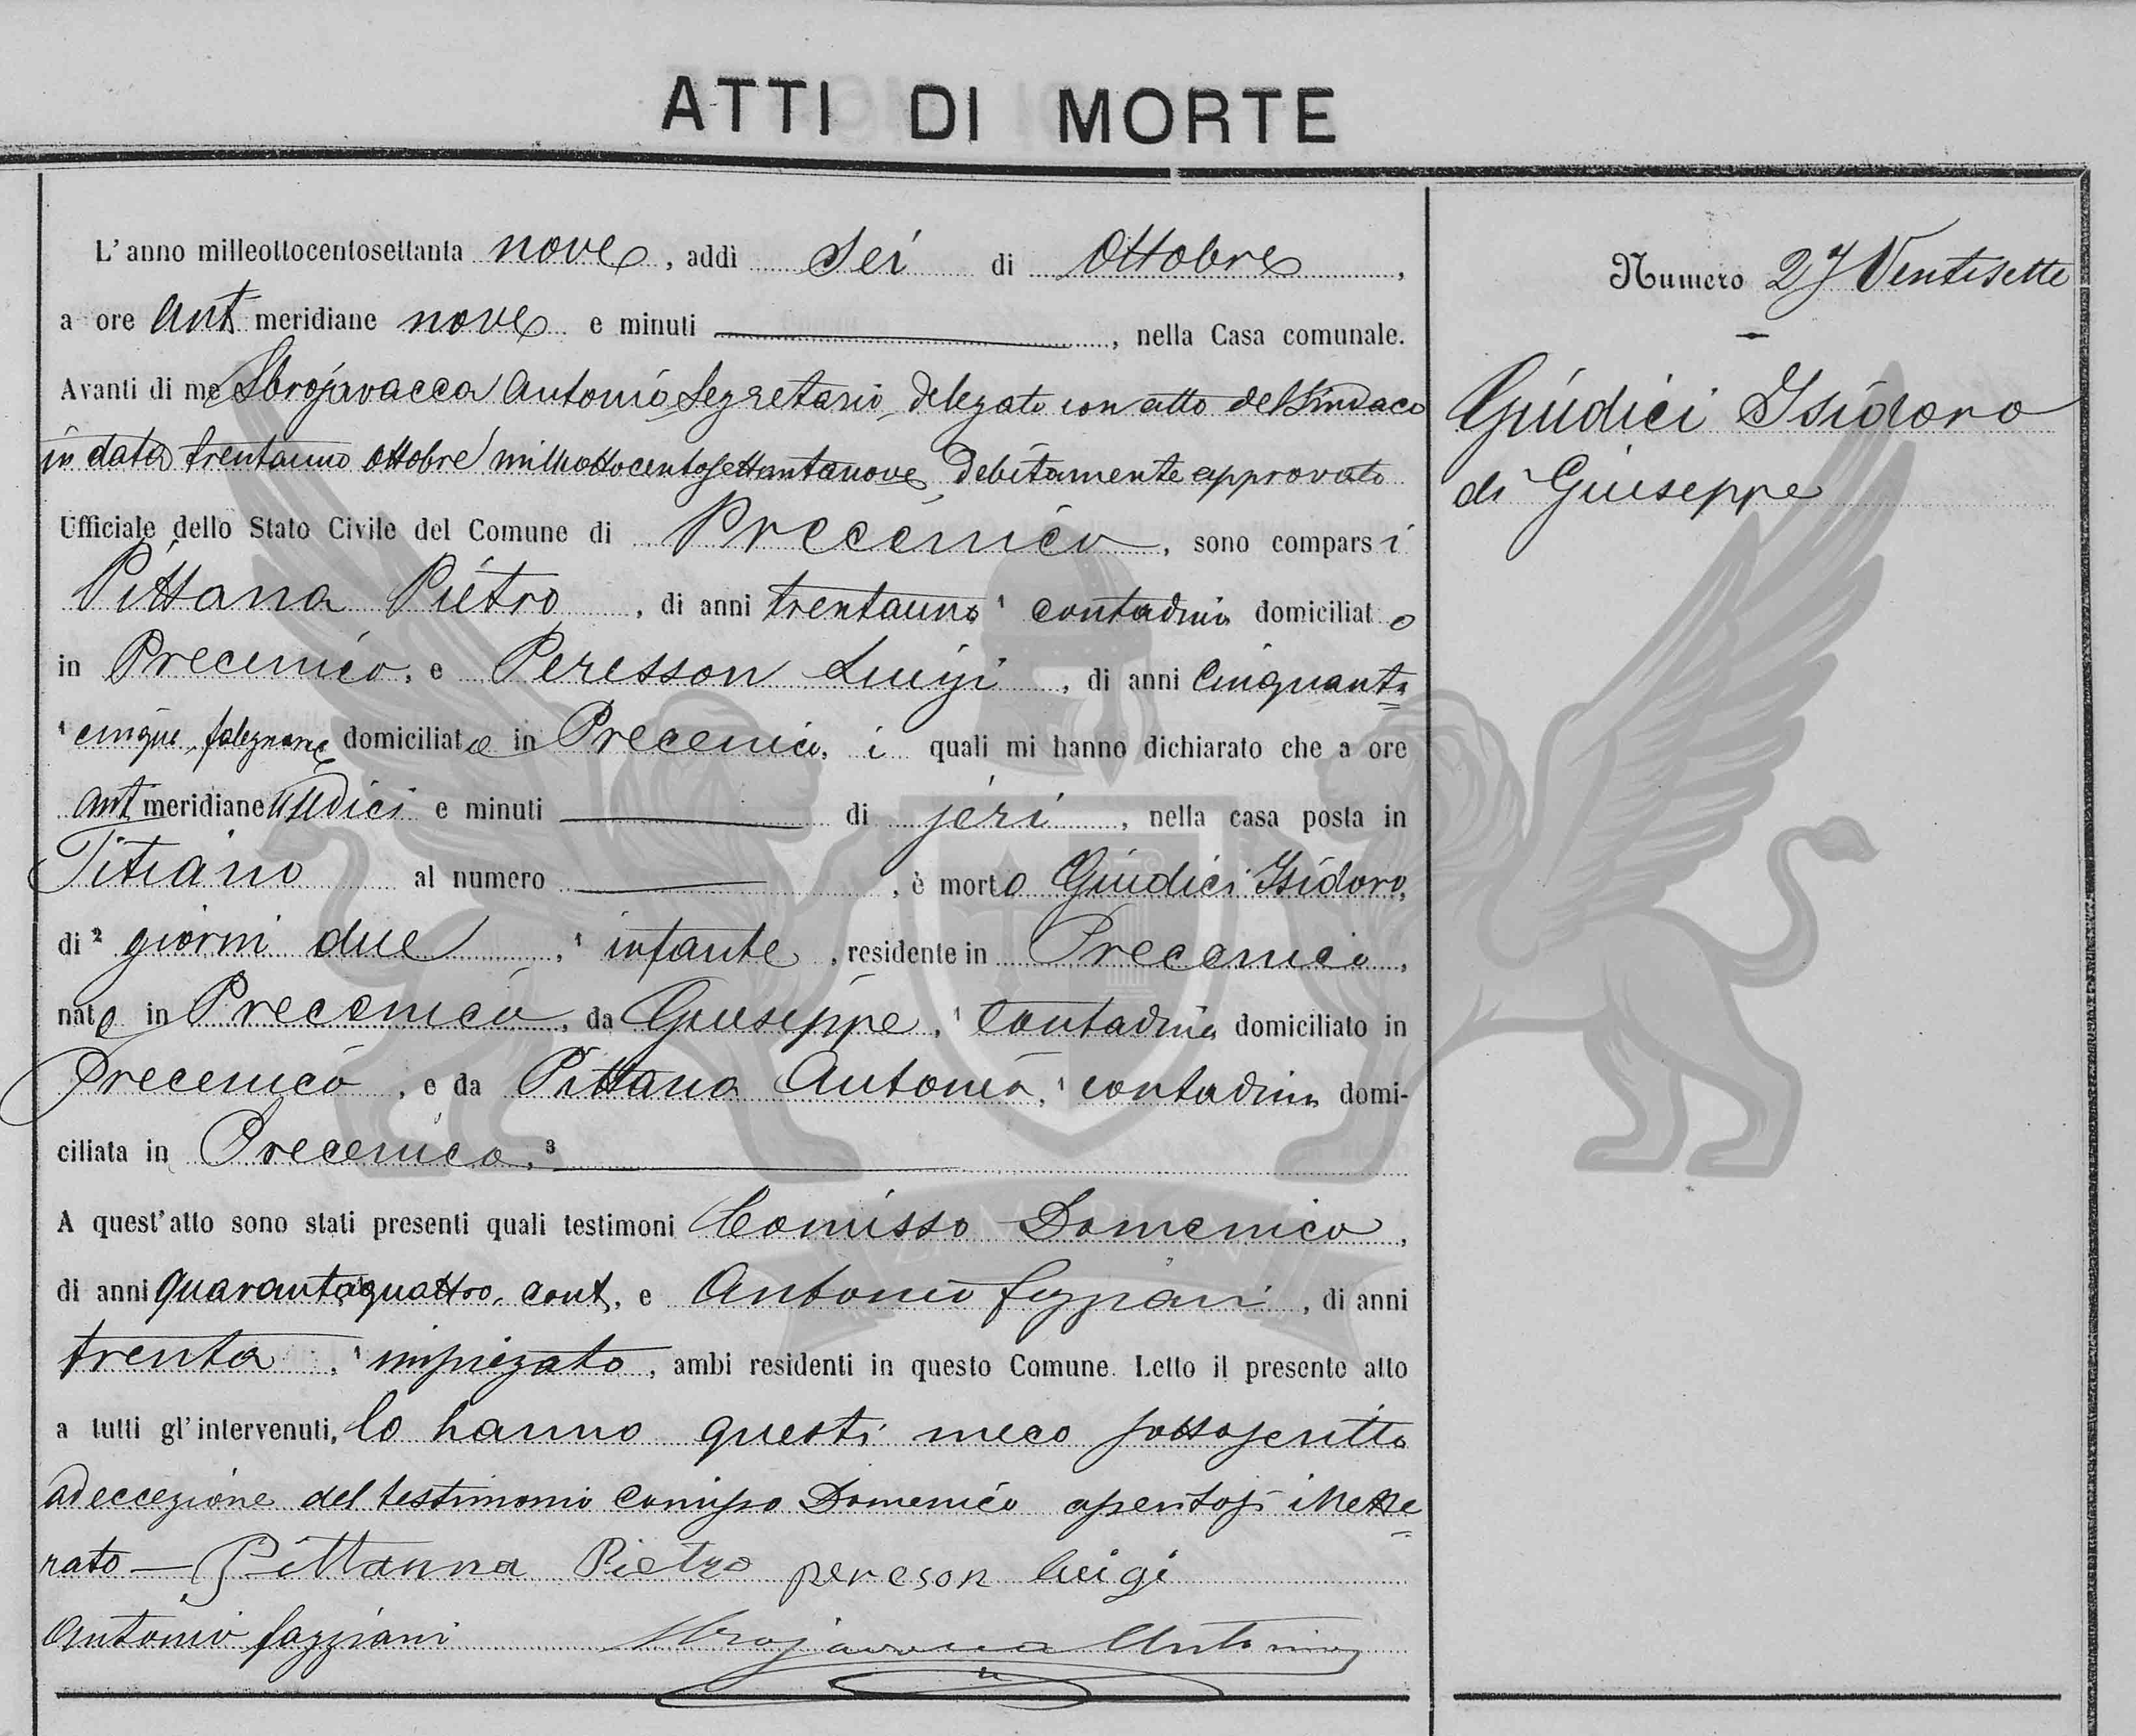 ATTI DI MORTE
L'anno milleottocentosettanta nove, addì sei di Ottobre,
a ore ant meridiane nove e minuti , nella Casa comunale.
Avanti di me Sbrojavacca Antonio Segretario, delegato con atto del Sindaco
in data trentauno ottobre milleottocentosettantanove, debitamente approvato
Ufficiale dello Stato Civile del Comune di Precenico, sono comparsi
Pittana Pietro, di anni trentauno ¹ contadino domiciliato
in Precenico, e Peresson Luigi, di anni cinquanta=
¹ cinque, falegname domiciliato in Precenico, i quali mi hanno dichiarato che a ore
ant meridiane undici e minuti di jeri, nella casa posta in
Titiano al numero , è morto Giudici Isidoro,
di ² giorni due, ¹ infante, residente in Precenico,
nato in Precenico, da Giuseppe, ¹ contadino domiciliato in
Precenico, e da Pittana Antonia, ¹ contadina domi-
ciliata in Precenico. ³
A quest'atto sono stati presenti quali testimoni Comisso Domenico,
di anni quarantaquattro, cont, e Antonio Fazziani, di anni
trenta, ¹ impiegato, ambi residenti in questo Comune. Letto il presente atto
a tutti gl'intervenuti, lo hanno questi meco sottoscritto
ad eccezione del testimonio Comisso Domenico illette=
rato — Pittanna Pietro pereson luigi
Antonio fazziani Sbrojavacca Antonio
Numero 27 Ventisette
Giudici Isidoro
di Giuseppe